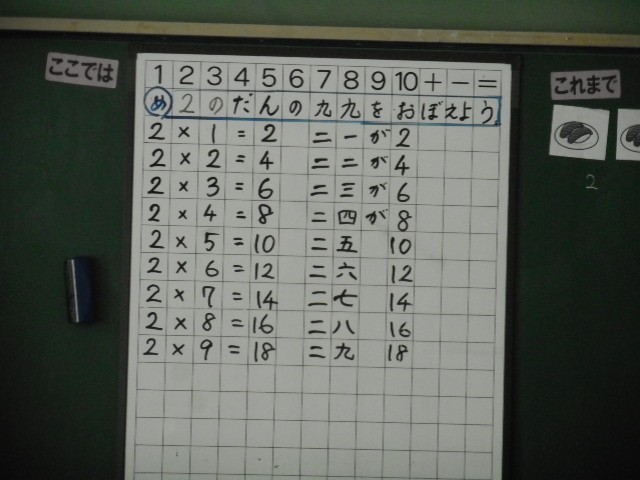 ここでは
1 2 3 4 5 6 7 8 9 10 + - =
め 2のだんの九九をおぼえよう。
2 × 1 = 2 二一が2
2 × 2 = 4 二二が4
2 × 3 = 6 二三が6
2 × 4 = 8 二四が8
2 × 5 = 10 二五 10
2 × 6 = 12 二六 12
2 × 7 = 14 二七 14
2 × 8 = 16 二八 16
2 × 9 = 18 二九 18
これまで
2